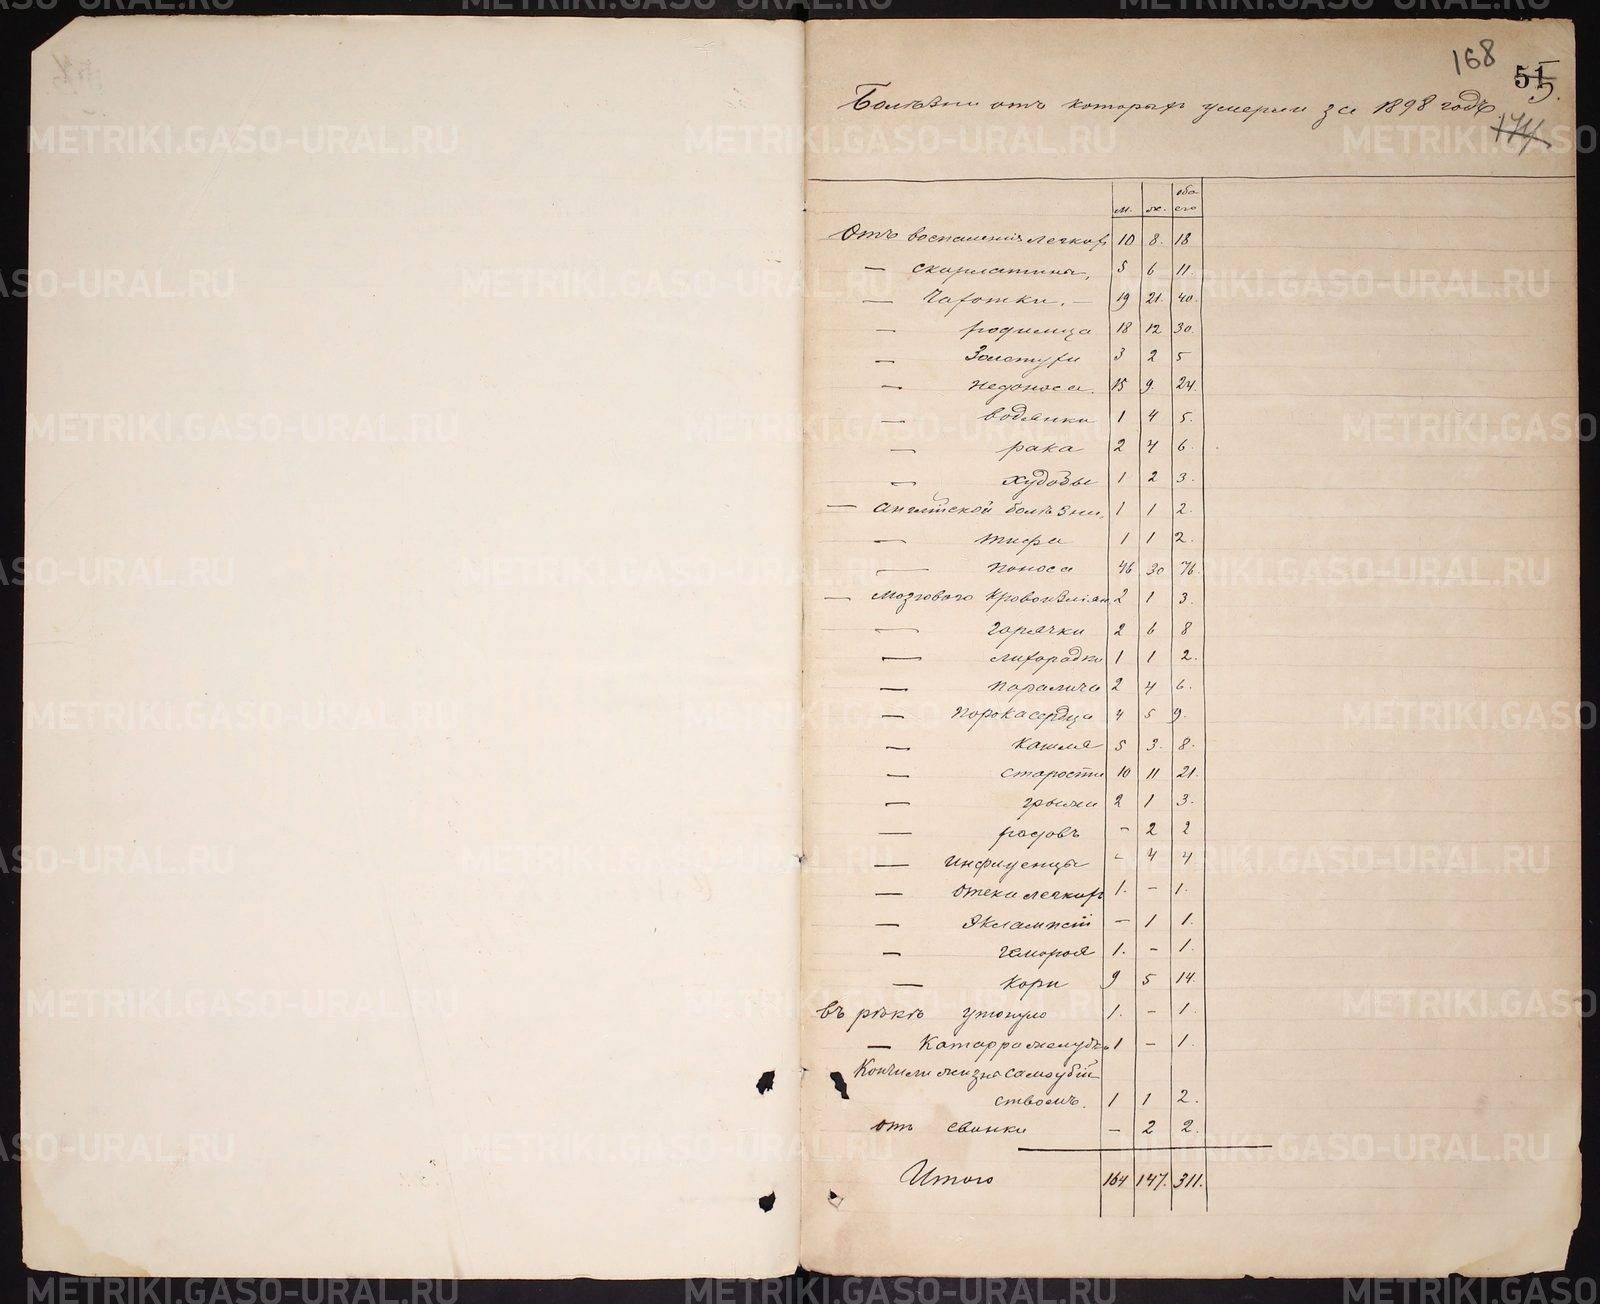 168
515.
Болѣзни отъ которыхъ умерли за 1898 годъ
174
м. ж. обо-
его
Отъ воспаленія легкихъ 10 8. 18
— скарлатины, 5 6 11.
— Чахотки. — 19 21. 40.
— родимца 18 12 30.
— Золотухи 3 2 5
— недоноса. 15 9. 24
— водянки 1 4 5.
— рака 2 4 6.
— худобы 1 2 3.
— англійской болѣзни. 1 1 2.
— тифа 1 1 2.
— поноса 46 30 76.
— мозгового кровоизліян. 2 1 3.
— горячки 2 6 8
— лихорадки 1 1 2.
— паралича 2 4 6.
— порока сердца 4 5 9.
— кашля 5 3. 8.
— старости 10 11 21.
— грыжи 2 1 3.
— родовъ - 2 2
— инфлуенцы - 4 4
— отека легкихъ 1. - 1.
— Экламисіи — 1 1.
— геморроя 1. - 1.
— кори 9 5 14.
въ рѣкѣ утонуло 1. - 1.
— Катарра желудка 1 - 1.
Кончили жизнь самоубій
ствомъ. 1 1 2.
отъ свинки - 2 2.
Итого 164 147. 311.
METRIKI.GASO-URAL.RU